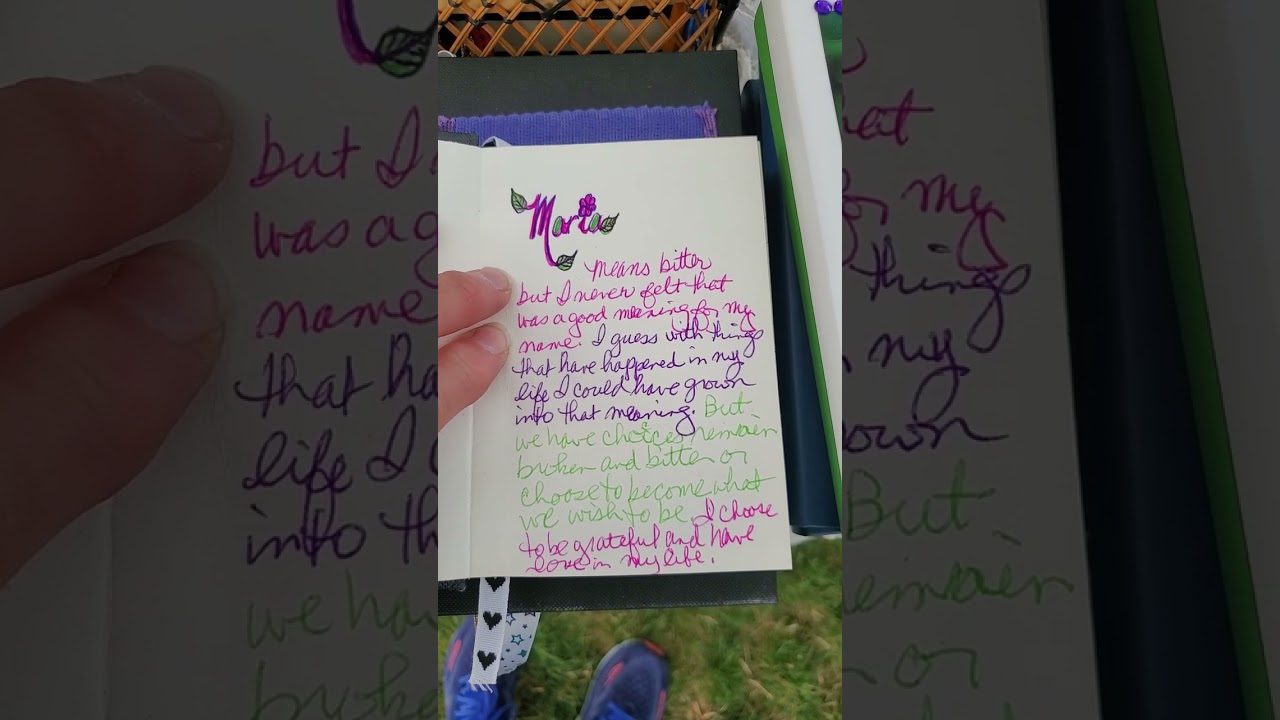 Maria
means bitter
but I never felt that
was a good meaning for my
name. I guess with things
that have happened in my
life I could have grown
into that meaning. But
we have choices remain
broken and bitter or
choose to become what
we wish to be. I choose
to be grateful and have
love in my life.